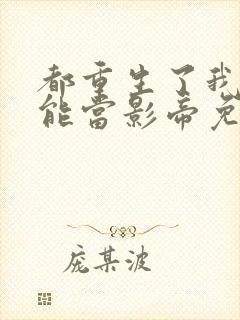 都重生了我
能当影帝免
庞某波